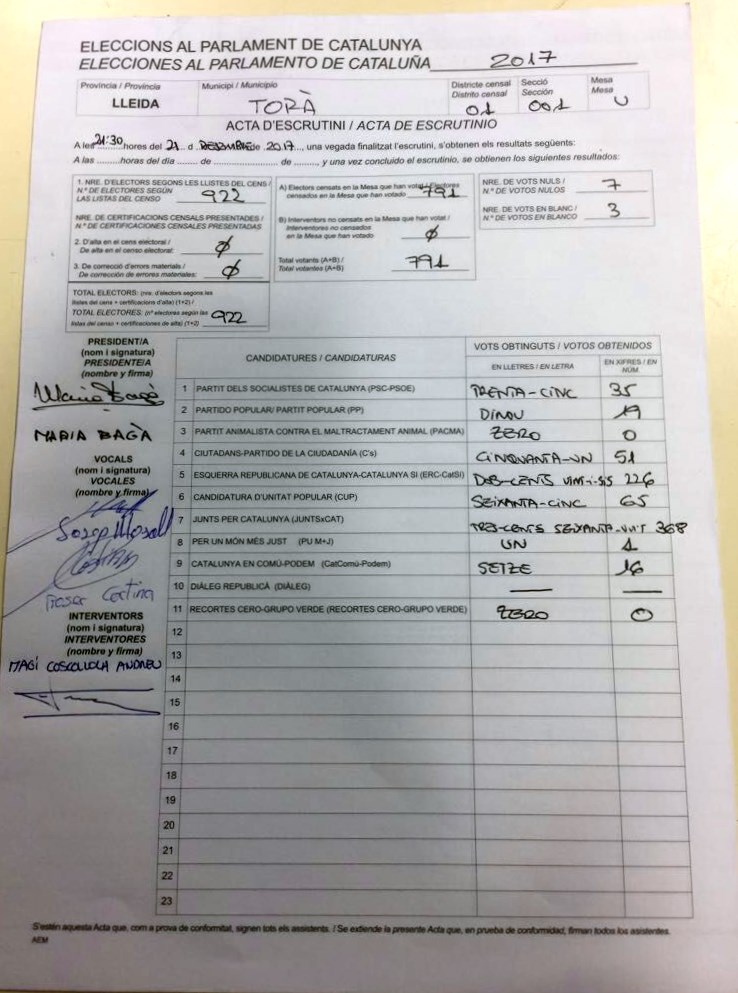 ELECCIONS AL PARLAMENT DE CATALUNYA
ELECCIONES AL PARLAMENTO DE CATALUÑA 2017
Província / Provincia
LLEIDA
Municipi / Municipio
TORÀ
Districte censal
Distrito censal
01
Secció
Sección
001
Mesa
Mesa
U
ACTA D'ESCRUTINI / ACTA DE ESCRUTINIO
A les 21:30 hores del 21 d DESEMBRE de 2017, una vegada finalitzat l'escrutini, s'obtenen els resultats següents:
A las ......... horas del día ........ de .................... de ........, y una vez concluido el escrutinio, se obtienen los siguientes resultados:
1. NRE. D'ELECTORS SEGONS LES LLISTES DEL CENS /
N.º DE ELECTORES SEGÚN
LAS LISTAS DEL CENSO 922
NRE. DE CERTIFICACIONS CENSALS PRESENTADES /
N.º DE CERTIFICACIONES CENSALES PRESENTADAS
2. D'alta en el cens electoral: /
De alta en el censo electoral: Ø
3. De correcció d'errors materials /
De corrección de errores materiales: Ø
TOTAL ELECTORS: (nre. d'electors segons les
llistes del cens + certificacions d'alta) (1+2) /
TOTAL ELECTORES: (nº electores según las
listas del censo + certificaciones de alta) (1+2) 922
A) Electors censats en la Mesa que han votat / Electores
censados en la Mesa que han votado 791
B) Interventors no censats en la Mesa que han votat /
Interventores no censados
en la Mesa que han votado Ø
Total votants (A+B) /
Total votantes (A+B) 791
NRE. DE VOTS NULS /
N.º DE VOTOS NULOS 7
NRE. DE VOTS EN BLANC /
N.º DE VOTOS EN BLANCO 3
PRESIDENT/A
(nom i signatura)
PRESIDENTE/A
(nombre y firma)
Maria Bagà
MARIA BAGÀ
VOCALS
(nom i signatura)
VOCALES
(nombre y firma)
Josep
Roser
INTERVENTORS
(nom i signatura)
INTERVENTORES
(nombre y firma)
MAGÍ COSCOLLOLA ANDREU
CANDIDATURES / CANDIDATURAS
VOTS OBTINGUTS / VOTOS OBTENIDOS
EN LLETRES / EN LETRA
EN XIFRES / EN NÚM.
1 PARTIT DELS SOCIALISTES DE CATALUNYA (PSC-PSOE) TRENTA-CINC 35
2 PARTIDO POPULAR/ PARTIT POPULAR (PP) DINOU 19
3 PARTIT ANIMALISTA CONTRA EL MALTRACTAMENT ANIMAL (PACMA) ZERO 0
4 CIUTADANS-PARTIDO DE LA CIUDADANÍA (C's) CINQUANTA-UN 51
5 ESQUERRA REPUBLICANA DE CATALUNYA-CATALUNYA SÍ (ERC-CatSí) DOS-CENTS VINT-I-SIS 226
6 CANDIDATURA D'UNITAT POPULAR (CUP) SEIXANTA-CINC 65
7 JUNTS PER CATALUNYA (JUNTSxCAT) TRES-CENTS SEIXANTA-VUIT 368
8 PER UN MÓN MÉS JUST (PU M+J) UN 1
9 CATALUNYA EN COMÚ-PODEM (CatComú-Podem) SETZE 16
10 DIÀLEG REPUBLICÀ (DIÀLEG) — —
11 RECORTES CERO-GRUPO VERDE (RECORTES CERO-GRUPO VERDE) ZERO 0
12
13
14
15
16
17
18
19
20
21
22
23
S'estén aquesta Acta que, com a prova de conformitat, signen tots els assistents. / Se extiende la presente Acta que, en prueba de conformidad, firman todos los asistentes.
AEM